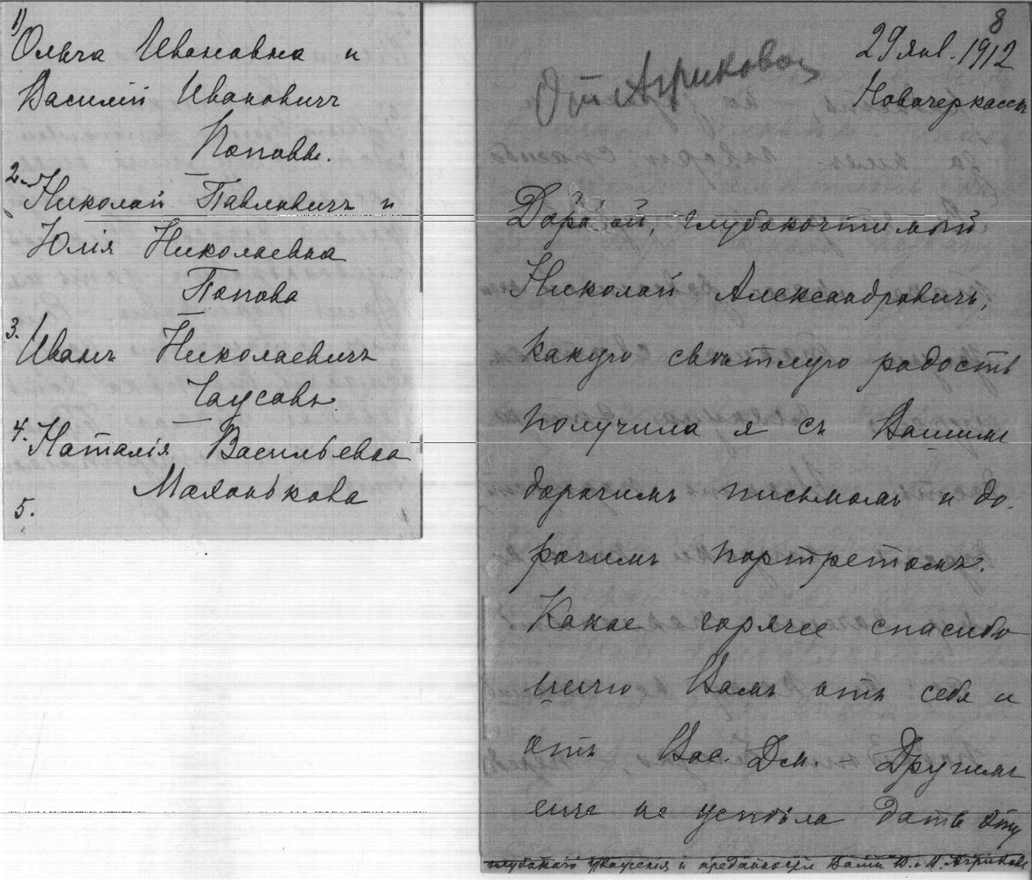 1) Ольга Ивановна и
Василій Ивановичъ
Поповы.
2. Николай Павловичъ и
Юлія Николаевна
Попова
3. Иванъ Николаевичъ
Чаусовъ.
4. Наталія Васильевна
Маханькова
5.
8
29 янв. 1912
Новочеркасскъ
От Агриковой
Дорогой, глубокочтимый
Николай Александровичъ,
какую свѣтлую радость
получила я съ Вашимъ
дорогимъ письмомъ и до-
рогимъ портретомъ.
Какое горячее спасибо
шлю Вамъ отъ себя и
отъ Вас. Дм. Другимъ
еще не успѣла дать
глубокаго уваженія и преданности Вамъ